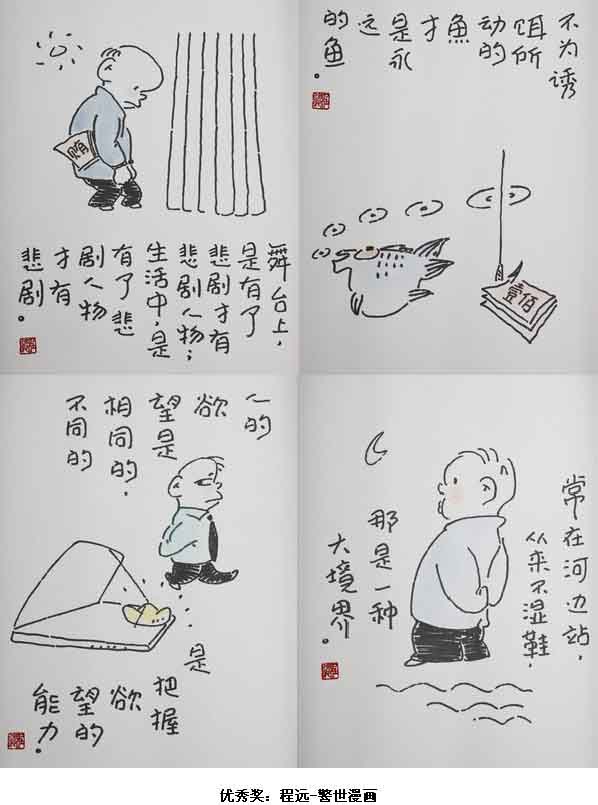 舞台上,
是有了
悲剧才有
悲剧人物;
生活中,是
有了悲
剧人物
才有
悲剧。
贿
不为诱
饵所
动的
魚
才
是永
远
的鱼。
壹佰
人的
欲
望是
相同的,
不同的
是
把握
欲
望的
能力。
常在河边站,
从来不湿鞋,
那是一种
大境界。
优秀奖：程远-警世漫画